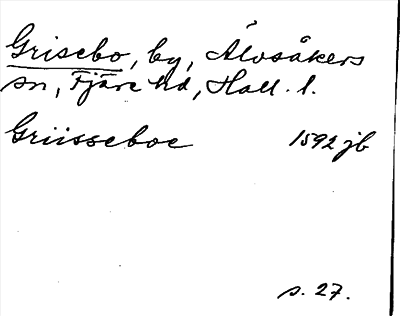 Grisebo, by, Älvsåkers
sn, Fjäre hd, Hall. l.
Griisseboe 1592 jb
s. 27.